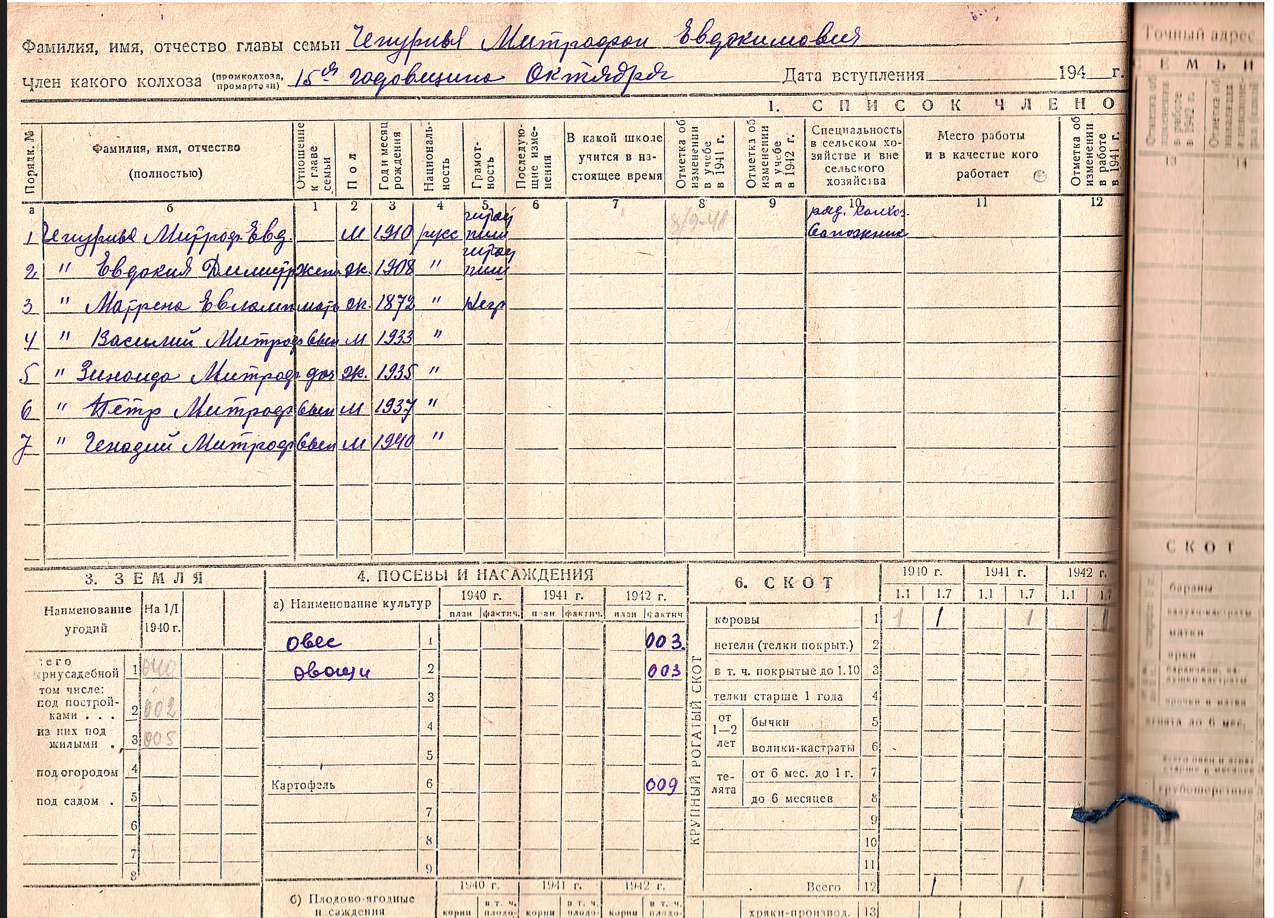 Фамилия, имя, отчество главы семьи Чепурных Митрофан Евдокимович
Член какого колхоза (промколхоза, промартели) 15ая годовщина Октября Дата вступления 194 г.
Точный адрес
1. СПИСОК ЧЛЕНО
СЕМЬИ
Порядк. № Фамилия, имя, отчество (полностью) Отношение к главе семьи Пол Год и месяц рождения Националь-ность Грамот-ность Последую-щие изме-нения В какой школе учится в на-стоящее время Отметка об изменении в учебе в 1941 г. Отметка об изменении в учебе в 1942 г. Специальность в сельском хо-зяйстве и вне сельского хозяйства Место работы и в качестве кого работает Отметка об изменении в работе в 1941 г.
а б 1 2 3 4 5 6 7 8 9 10 11 12 13 14
1 Митроф. Евд. М 1910 русс 8/9-41 ряд. колхоз. Сапожник
2 " Евдокия Димитр жена ж. 1908 "
3 " Матрена Евлампи мать ж. 1872 " негр
4 " Василий Митроф сын М 1933 "
5 " Зинаида Митроф доч ж. 1935 "
6 " Пётр Митроф сын М 1937 "
7 " Генадий Митроф сын М 1940 "
3. ЗЕМЛЯ
Наименование угодий На 1/I 1940 г.
всего
приусадебной 1 040
том числе:
под построй-
ками . . . 2 002
из них под
жилыми . 3 005
под огородом 4
под садом . 5
6
7
8
4. ПОСЕВЫ И НАСАЖДЕНИЯ
а) Наименование культур 1940 г. 1941 г. 1942 г.
план фактич. план фактич. план фактич
овес 1 003.
овощи 2 003
3
4
5
Картофель 6 009
7
8
9
б) Плодово-ягодные насаждения 1940 г. 1941 г. 1942 г.
корни в т. ч. плодо- корни в т. ч. плодо- корни в т. ч. плодо-
6. СКОТ
1940 г. 1941 г. 1942 г.
1.1 1.7 1.1 1.7 1.1 1.7
КРУПНЫЙ РОГАТЫЙ СКОТ
коровы 1 1 1 1 1
нетели (телки покрыт.) 2
в т. ч. покрытые до 1.10 3
телки старше 1 года 4
от 1—2 лет бычки 5
волики-кастраты 6
те-лята от 6 мес. до 1 г. 7
до 6 месяцев 8
9
10
11
Всего 12 1 1
хряки-производ. 13
СКОТ
бараны
матки
ярки